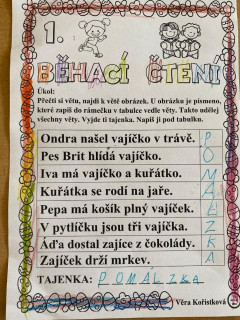 1.
BĚHACÍ ČTENÍ
Úkol:
Přečti si větu, najdi k větě obrázek. U obrázku je písmeno,
které zapiš do rámečku v tabulce vedle věty. Takto udělej
všechny věty. Vyjde ti tajenka. Napiš ji pod tabulku.
Ondra našel vajíčko v trávě. P
Pes Brit hlídá vajíčko. O
Iva má vajíčko a kuřátko. M
Kuřátka se rodí na jaře. L
Pepa má košík plný vajíček. L
V pytlíčku jsou tři vajíčka. Z
Áďa dostal zajíce z čokolády. K
Zajíček drží mrkev. A
TAJENKA: POMALZKA
Věra Kořistková